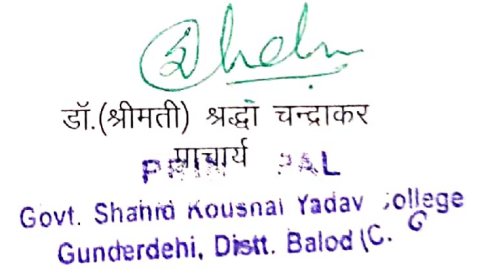 डॉ.(श्रीमती) श्रद्धा चन्द्राकर
प्राचार्य
PRINCIPAL
Govt. Shahid Kousnal Yadav College
Gunderdehi, Distt. Balod (C. G